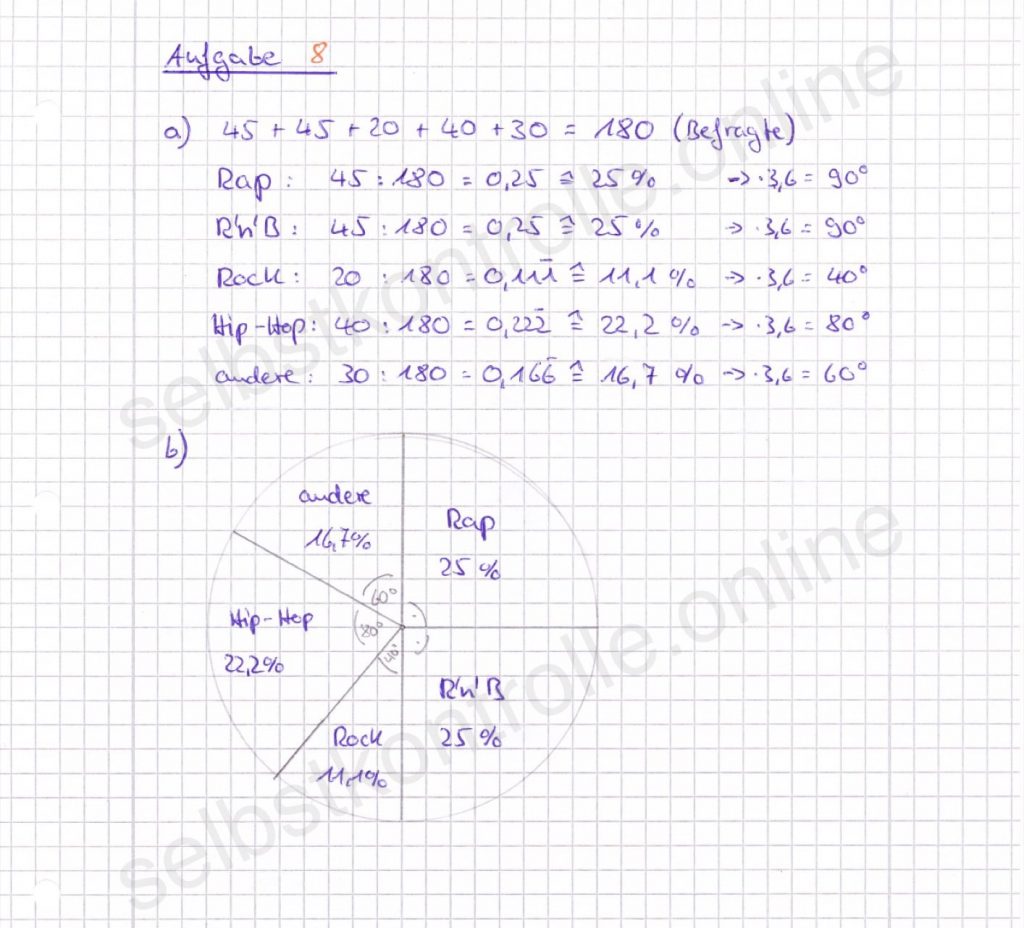 Aufgabe 8
a) 45 + 45 + 20 + 40 + 30 = 180 (Befragte)
Rap : 45 : 180 = 0,25 ≙ 25 % -> ·3,6 = 90°
R'n'B : 45 : 180 = 0,25 ≙ 25 % -> ·3,6 = 90°
Rock : 20 : 180 = 0,111̅ ≙ 11,1 % -> ·3,6 = 40°
Hip-Hop : 40 : 180 = 0,222̅ ≙ 22,2 % -> ·3,6 = 80°
andere : 30 : 180 = 0,166̅ ≙ 16,7 % -> ·3,6 = 60°
b)
andere
16,7%
Rap
25 %
60°
Hip-Hop
22,2%
80°
40°
R'n'B
25 %
Rock
11,1%
selbstkontrolle.online
selbstkontrolle.online